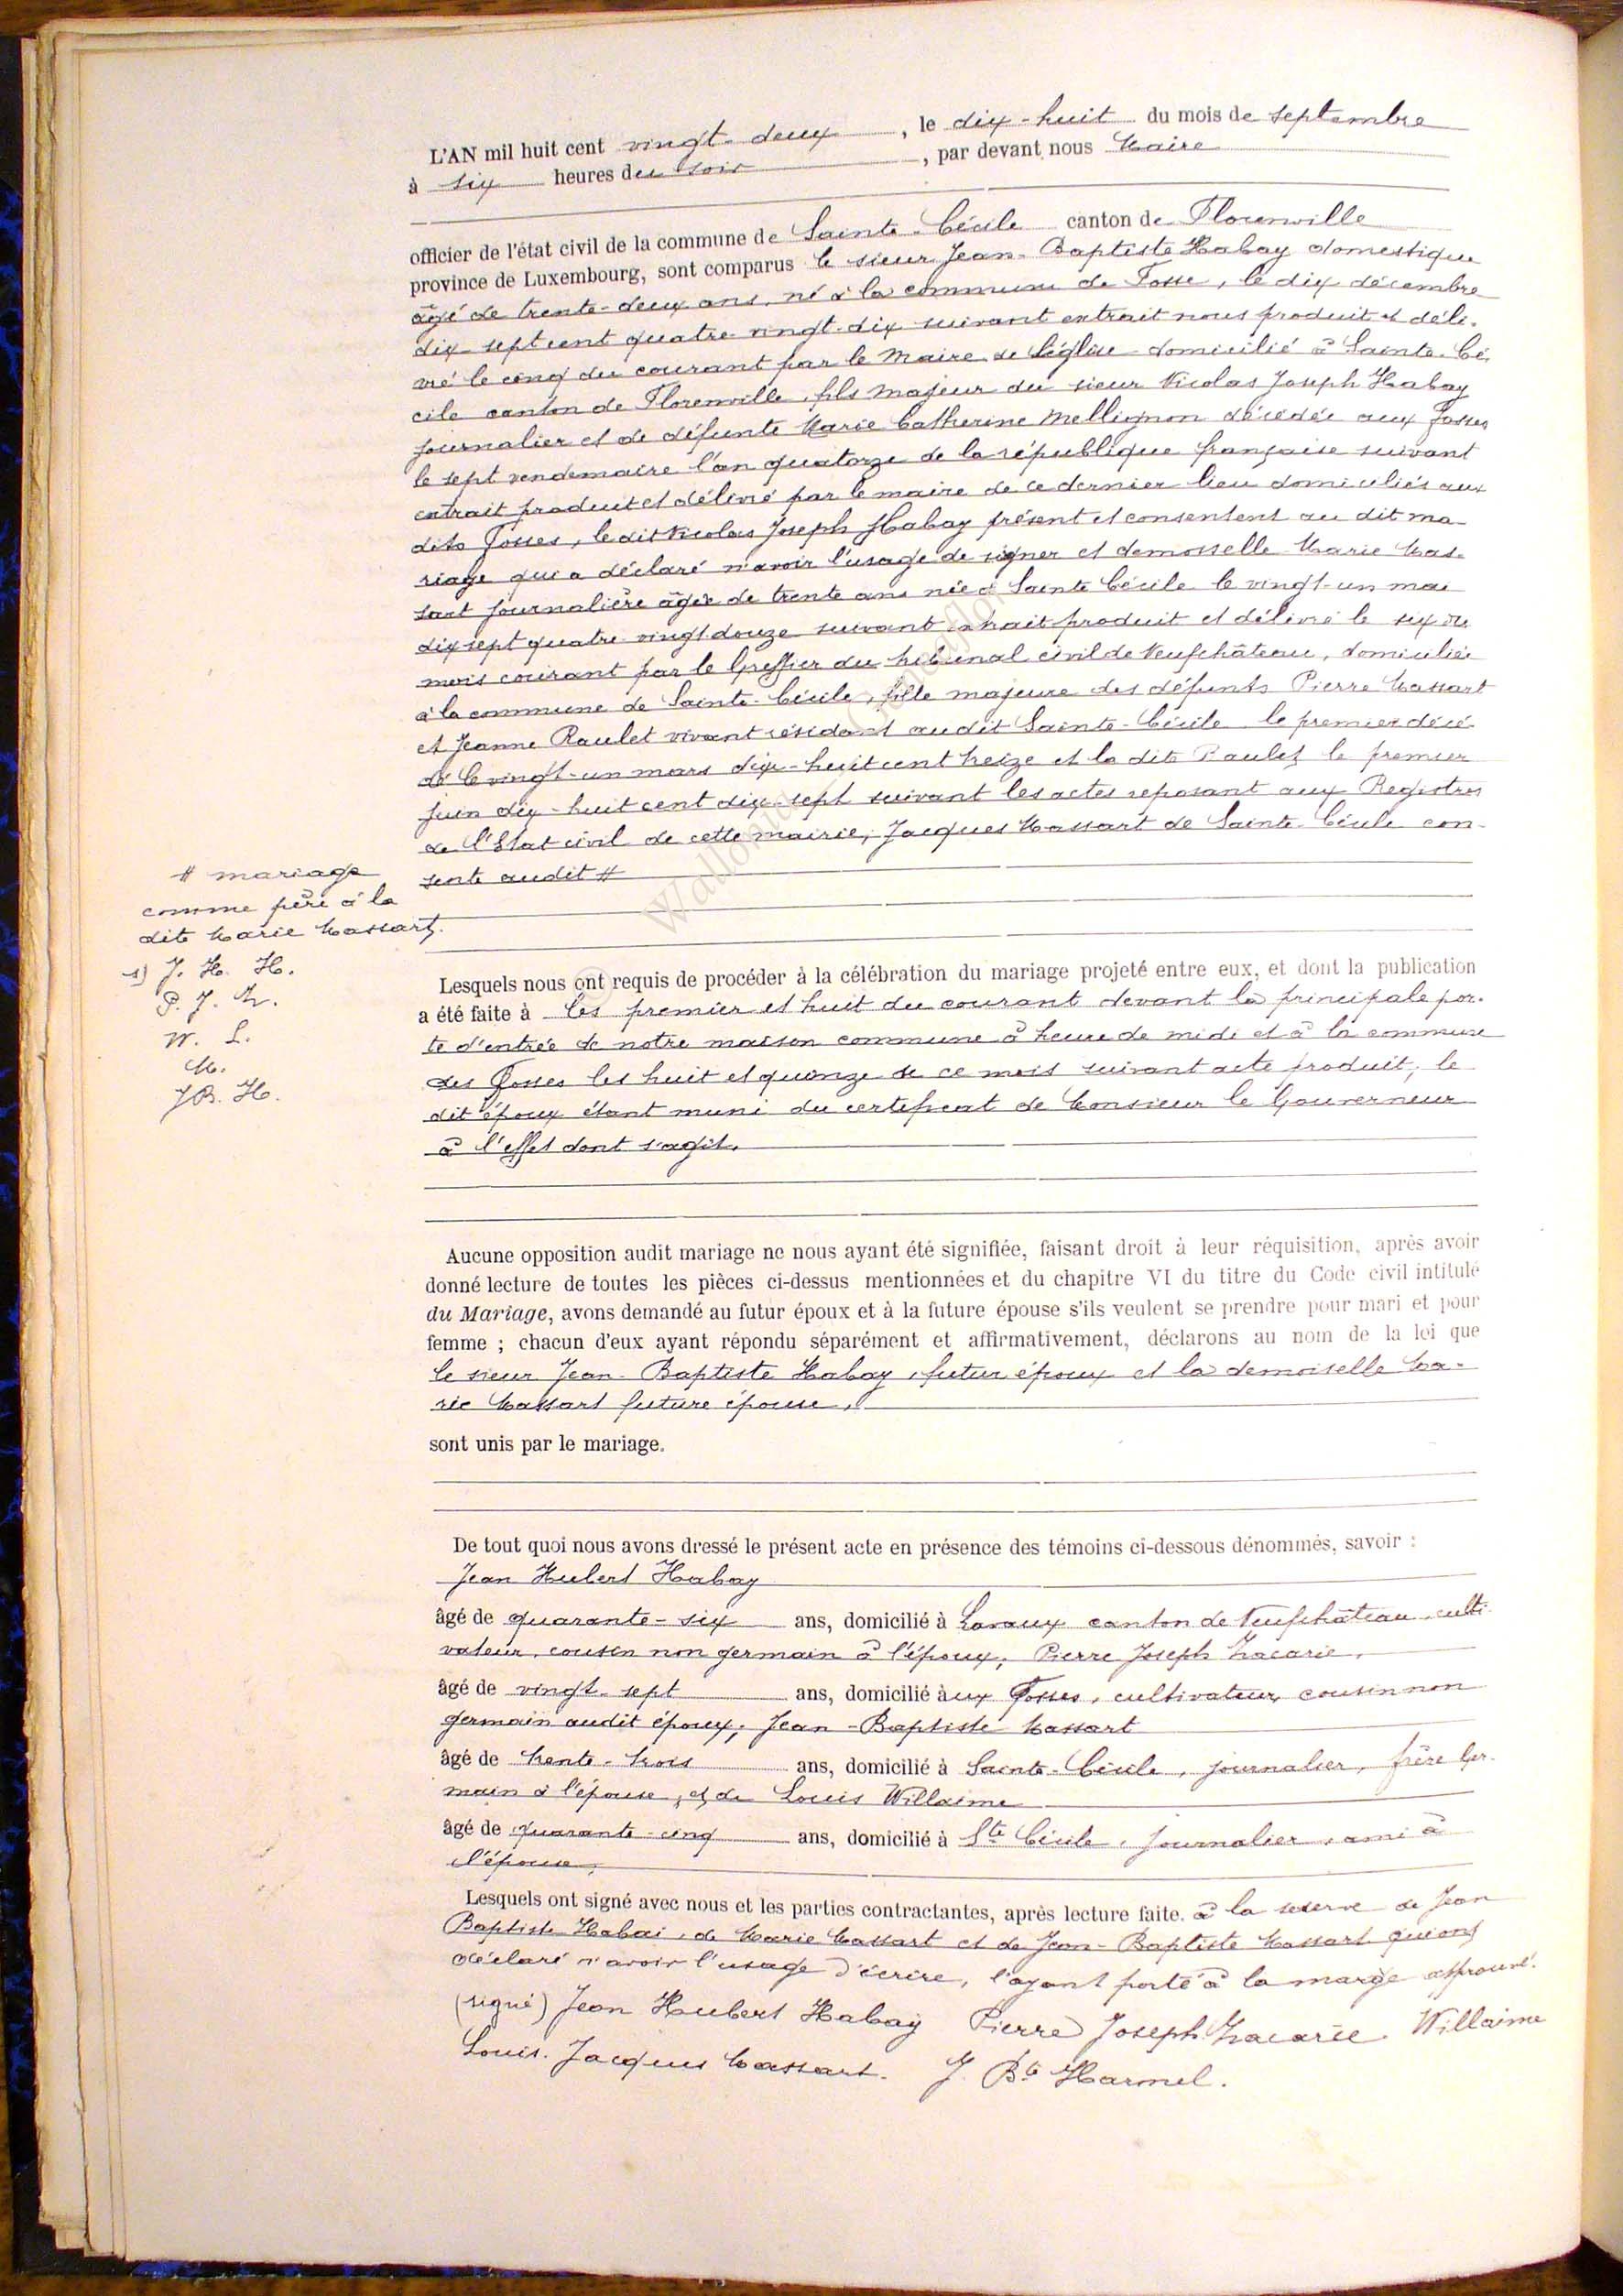 L'AN mil huit cent vingt-deux, le dix-huit du mois de septembre
à six heures du soir, par devant nous Maire
officier de l'état civil de la commune de Sainte-Cécile canton de Florenville
province de Luxembourg, sont comparus le sieur Jean-Baptiste Habay domestique
âgé de trente-deux ans, né à la commune de Fosse, le dix décembre
dix-sept cent quatre-vingt-dix suivant extrait nous produit et déli-
vré le cinq du courant par le Maire de Léglise domicilié à Sainte-Cé
cile canton de Florenville, fils majeur du sieur Nicolas Joseph Habay
journalier et de défunte Marie Catherine Mellignon décédée aux Fosses
le sept vendemaire l'an quatorze de la république française suivant
extrait produit et délivré par le maire de ce dernier lieu domiciliés aux
dits Fosses, le dit Nicolas Joseph Habay présent et consentent au dit ma-
riage qui a déclaré n'avoir l'usage de signer et demosselle Marie Mas-
sart journalière âgée de trente ans née à Sainte Cécile le vingt-un mai
dix sept quatre vingt douze suivant extrait produit et délivré le six du
mois courant par le Greffier du tribunal civil de Neufchâteau, domiciliée
à la commune de Sainte-Cécile, fille majeure des défunts Pierre Massart
et Jeanne Raulet vivant résidant au dit Sainte-Cécile le premier décé-
dé le vingt-un mars dix-huit cent treize et la dite Raulet le premier
juin dix-huit cent dix-sept suivant les actes reposant aux Registres
de l'Etat civil de cette mairie, Jacques Massart de Sainte Cécile con-
sente audit #
# mariage
comme père à la
dite Marie Massart.
1) J. H. H.
P. J. Z.
W. L.
M.
J B. H.
Lesquels nous ont requis de procéder à la célébration du mariage projeté entre eux, et dont la publication
a été faite à les premier et huit du courant devant la principale por-
te d'entrée de notre maison commune à heure de midi et à la commune
des Fosses les huit et quinze de ce mois suivant acte produit, le
dit époux étant muni du certificat de Monsieur le Gouverneur
à l'effet dont s'agit.
Aucune opposition audit mariage ne nous ayant été signifiée, faisant droit à leur réquisition, après avoir
donné lecture de toutes les pièces ci-dessus mentionnées et du chapitre VI du titre du Code civil intitulé
du Mariage, avons demandé au futur époux et à la future épouse s'ils veulent se prendre pour mari et pour
femme ; chacun d'eux ayant répondu séparément et affirmativement, déclarons au nom de la loi que
le sieur Jean-Baptiste Habay, futur époux et la demoiselle Ma-
rie Massart future épouse,
sont unis par le mariage.
De tout quoi nous avons dressé le présent acte en présence des témoins ci-dessous dénommés, savoir :
Jean Hubert Habay
âgé de quarante-six ans, domicilié à Lavaux canton de Neufchâteau, culti-
vateur, cousin non germain à l'époux; Pierre Joseph Zacarie,
âgé de vingt-sept ans, domicilié àux Fosses, cultivateur, cousin non
germain audit époux; Jean-Baptiste Massart
âgé de trente-trois ans, domicilié à Sainte-Cécile, journalier, frère Ger-
main à l'épouse, et de Louis Willaime
âgé de quarante-cinq ans, domicilié à Ste Cécile, journalier, ami à
l'épouse,
Lesquels ont signé avec nous et les parties contractantes, après lecture faite. à la reserve de Jean
Baptiste Habai, de Marie Massart et de Jean-Baptiste Massart qui ont
déclaré n'avoir l'usage d'écrire, l'ajant porté à la marge approuvé.
(signé) Jean Hubert Habay Pierre Joseph Zacarie. Willaime
Louis. Jacques Massart. J. Bte Harmel.